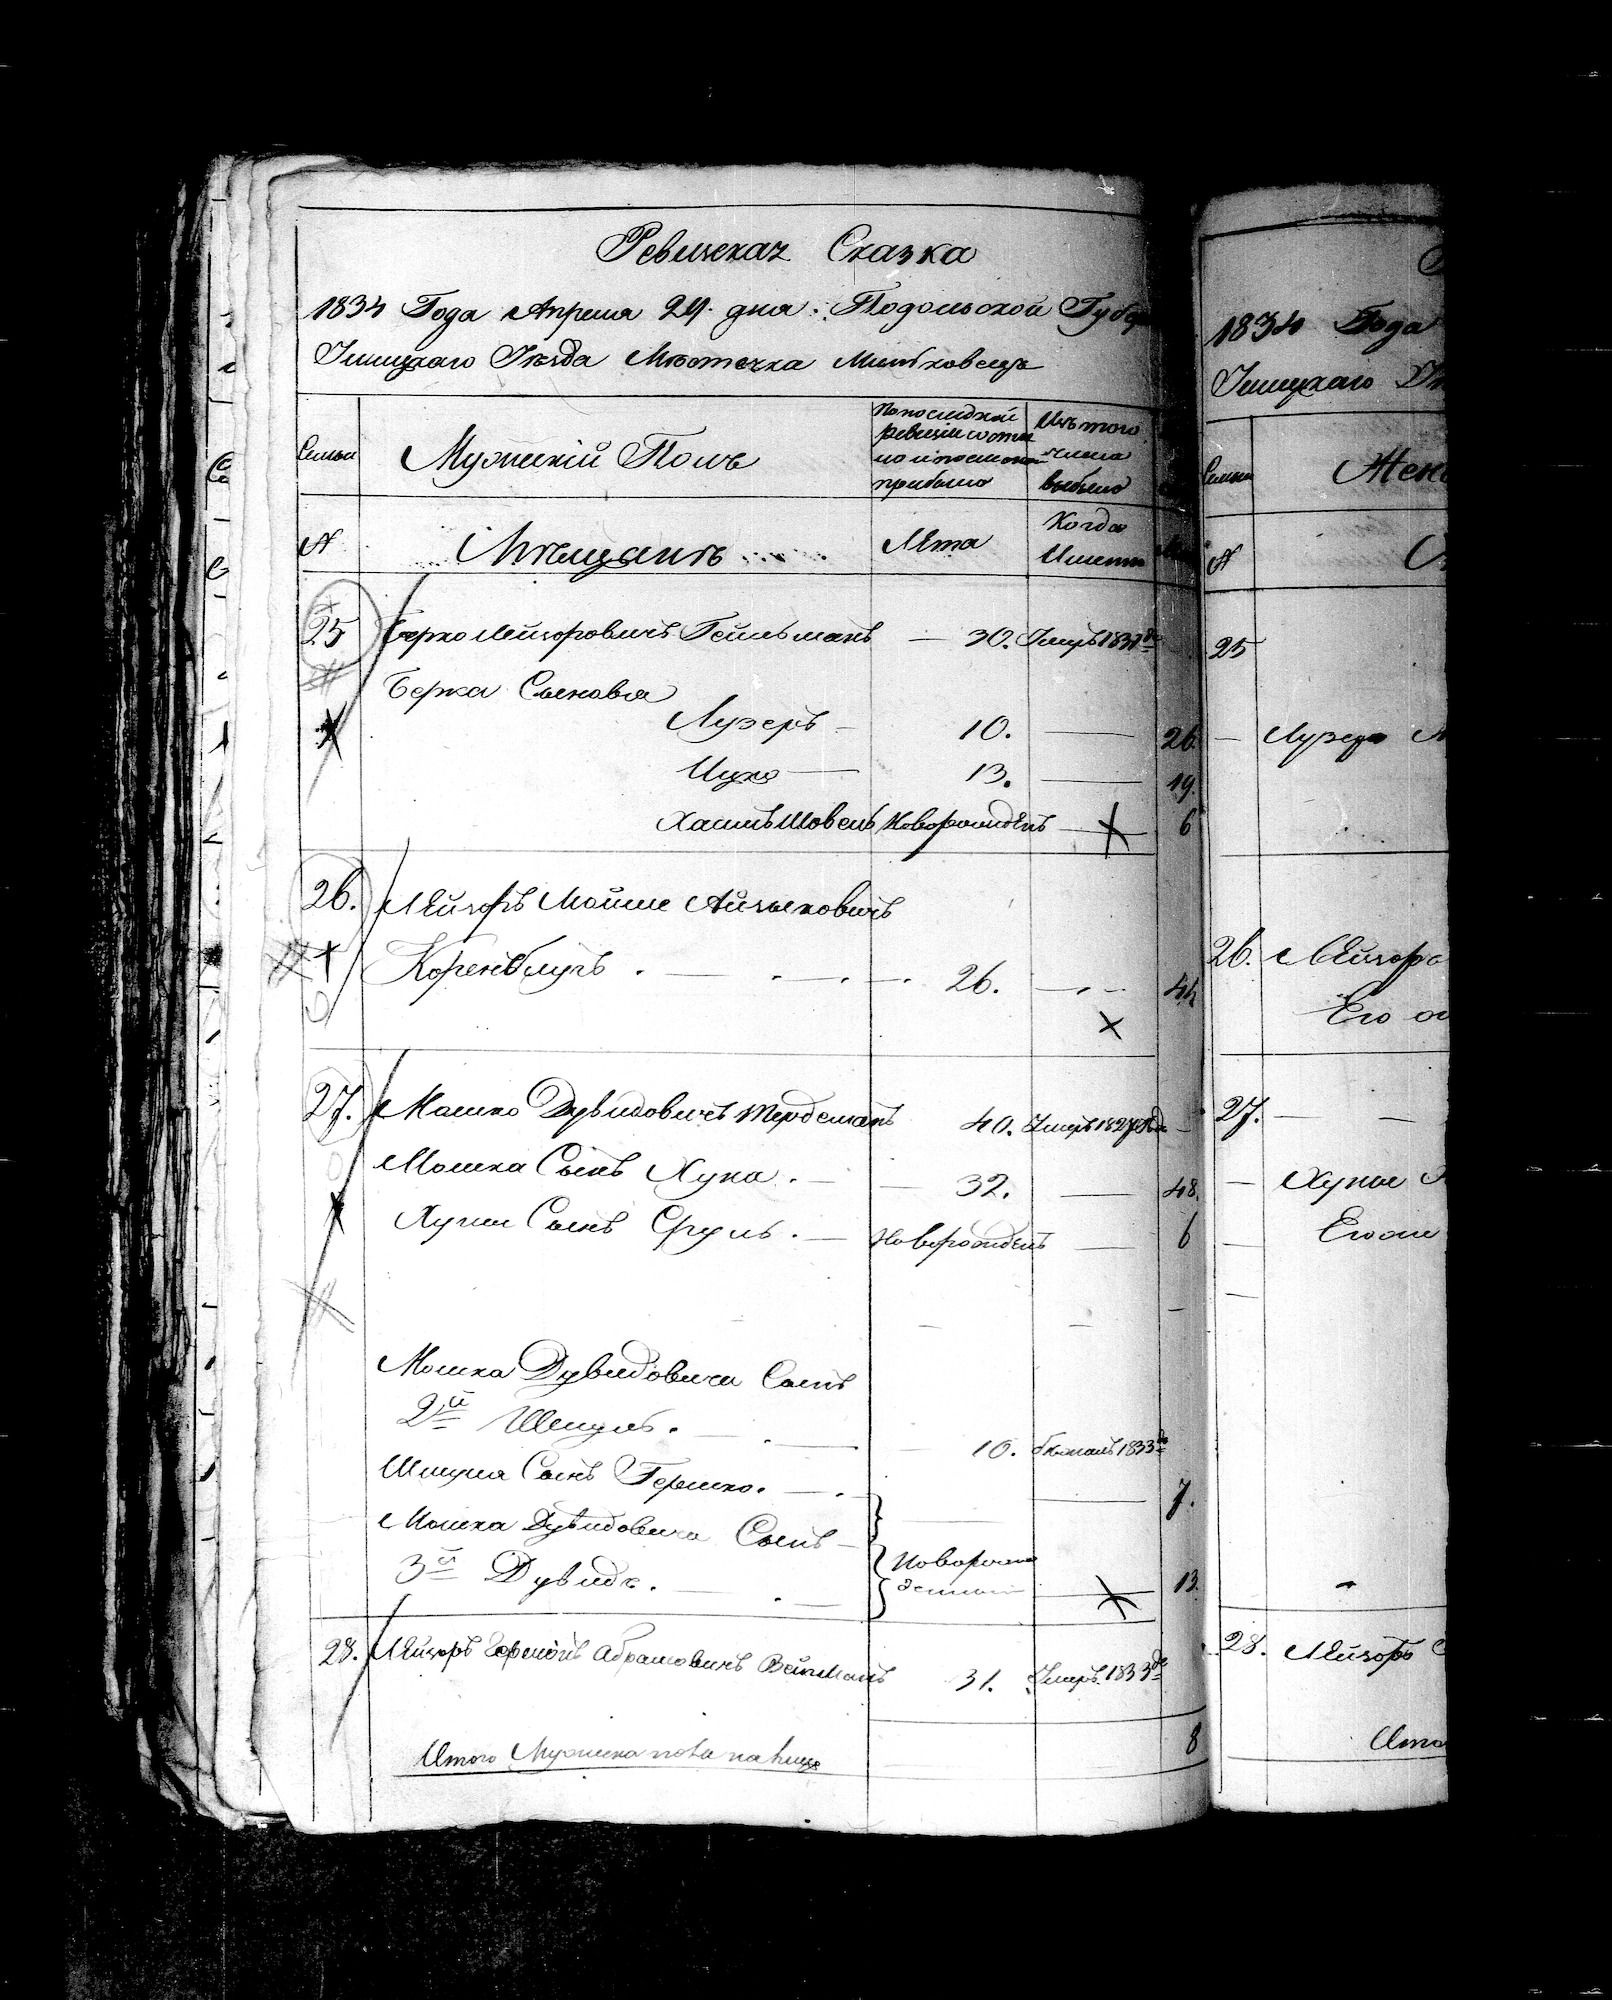 Ревизская Сказка
1834 Года Апреля 29. дня. Подольской Губер
Ушицкаго Уезда Местечка Миньковецъ
Семьи
Мужескій Полъ
По последней ревизіи состояло и после оной прибыло
Изъ того числа выбыло
№
Мещанъ
Лета
Когда Именно
25
Берко Лейзоровичъ Гейльманъ — 30. Умеръ 1831 го
Берка Сыновья
Лузеръ — 10. — 26.
Ицко — 13. — 19.
Новорожденъ — 6
26. Лейзоръ Мойше Айзыковичъ
Коренблутъ . — 26. — 44
27. Мошко Дувидовичъ 40. Умеръ 1827
Мошка Сынъ Хуна . — 32. — 48.
Хуны Сынъ Сруль . — Новорожденъ — 6
Мошка Дувидовича Сынъ
2й Шмуль . — 10. 1833
Шмуля Сынъ Гершко . — 7.
Мошка Дувидовича Сынъ —
3й Дувидъ . — Новорожденный — 13.
28. Лейзоръ Абрамовичъ Вейсманъ 31. Умеръ 1833 го
Итого Мужеска пола на лицо 8
1834 Года
Ушицкаго
Семьи
Жен
№
25
— Лузера
26. Лейзора
Его
27. — —
— Хуны
Его
28. Лейзоръ
Ито